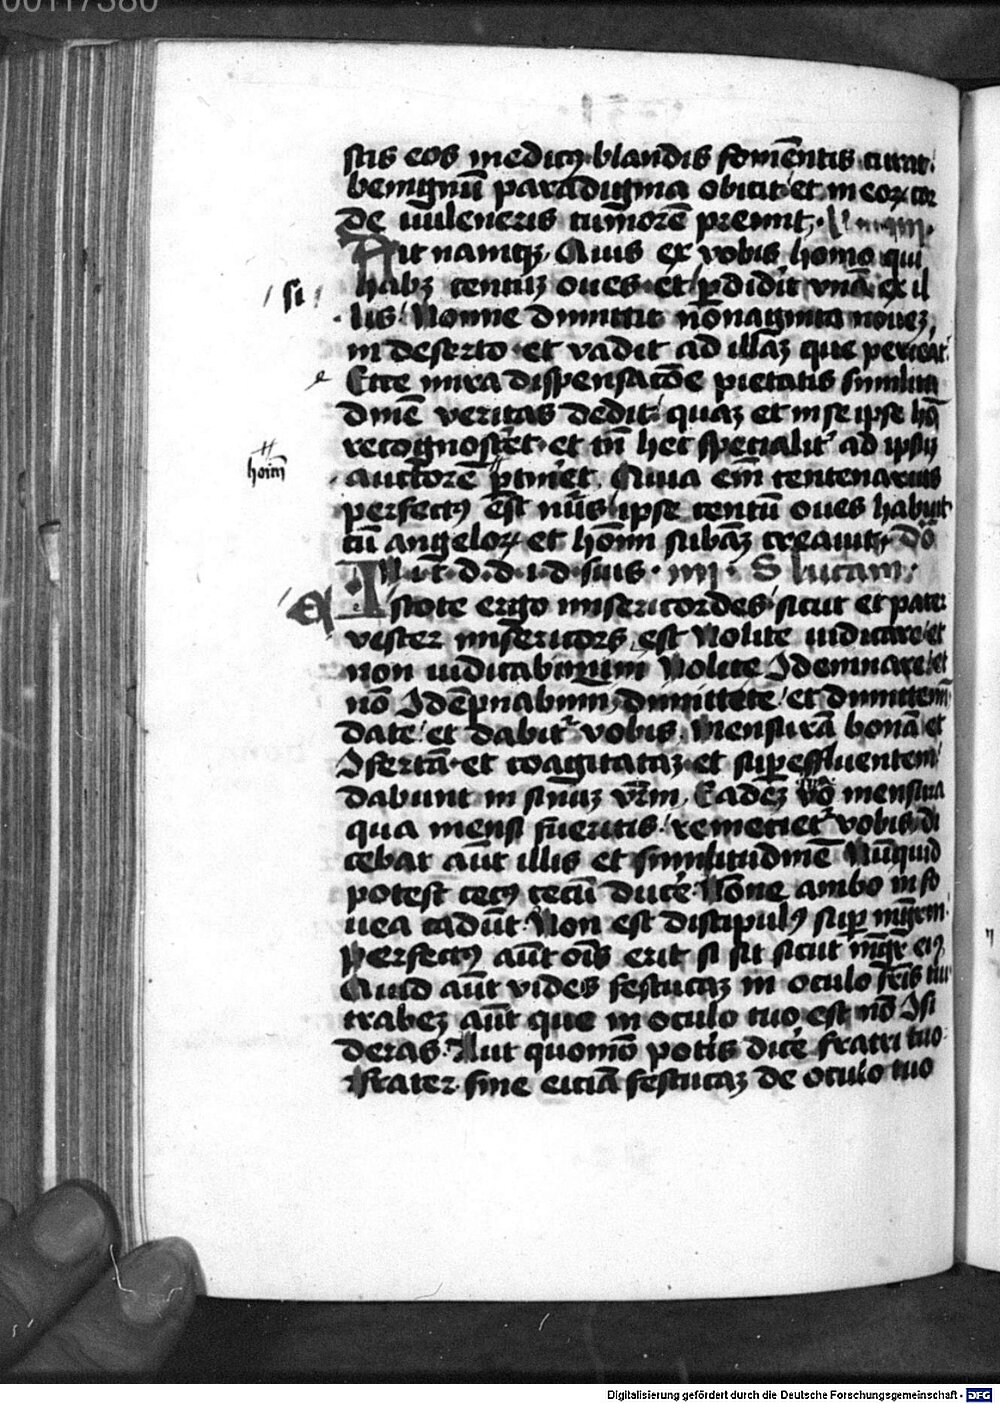 00117380
stis eos medicꝰ blandis fomētis curat.
benignū paradigma obicit et in eoꝝ cor
de vulneris tumorē premit.
Ait namqꝫ. Quis ex vobis homo qui
si
habꝫ centuꝫ oues et ꝑdidit vnā ex il
lis. Nonne dimittit nonaginta noueꝫ
in deserto et vadit ad illaꝫ que perierat.
e
Ecce mira dispensacōe pietatis similitu
dinē veritas dedit. quaꝫ et in se ipse hō
recognosceret. et tn̄ hec specialit' ad ipsuꝫ
hoim̄
auctorē ꝑtineret. Quia em̄ centenarius
perfectꝰ est nūs ipse centū oues habuit
cū angeloꝝ et homi subāꝫ creauit. Dō
In i. t. d. d. i. d. suis. iiii. S lucam.
E
Istote ergo misericordes sicut et pater
vester misericors est Nolite iudicare et
non iudicabimini Nolite ↄdemnare et
nō ↄdēpnabimini dimittete et dimittemi
date et dabit' vobis. Mensurā bonā et
ↄfertā et coagitataꝫ et suꝑeffluentem
dabunt in sinuꝫ vr̄m. Eadeꝫ vō mensura
qua mensi fueritis remeciet' vobis di
cebat aūt illis et similitudinē Nūquid
potest cecꝰ cecū duce' Nōne ambo in fo
uea cadūt Non est discipulꝰ suꝑ mgr̄m.
Perfectꝰ aūt oīs erit si sit sicut mgr̄ eiꝰ
Quid aūt vides festucaꝫ in oculo fr̄is tui
trabeꝫ aūt que in oculo tuo est nō ↄsi
deras. Aut quomō potis dice' fratri tuo.
frater sine eiciā festucaꝫ de oculo tuo
Digitalisierung gefördert durch die Deutsche Forschungsgemeinschaft - DFG